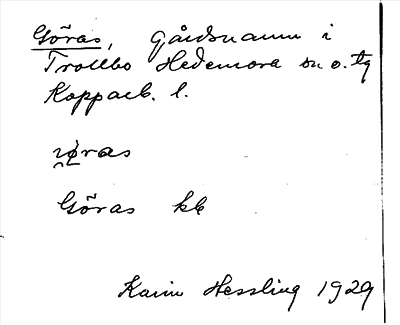 Göras, gårdsnamn i
Trollbo Hedemora sn o. tg
Kopparb. l.
Göras kb
Karin Hessling 1929